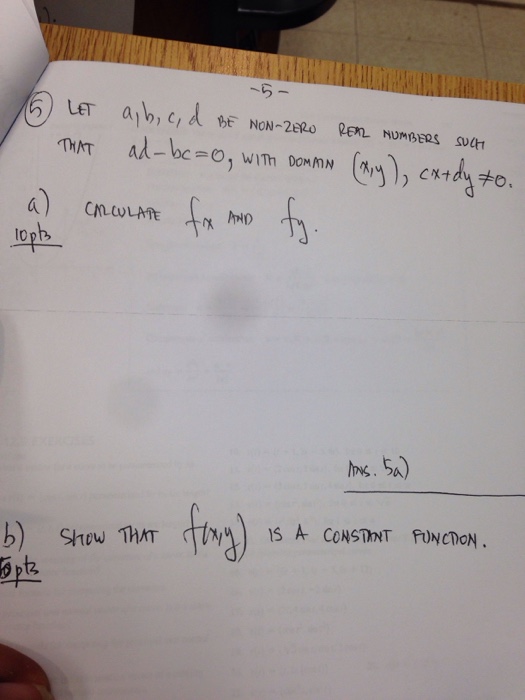 -5-
5 LET a,b,c,d BE NON-ZERO REAL NUMBERS SUCH
THAT ad-bc=0, WITH DOMAIN (x,y), cx+dy≠0.
a) CALCULATE fx AND fy.
10pts
ANS. 5a)
b) SHOW THAT f(x,y) IS A CONSTANT FUNCTION.
pts